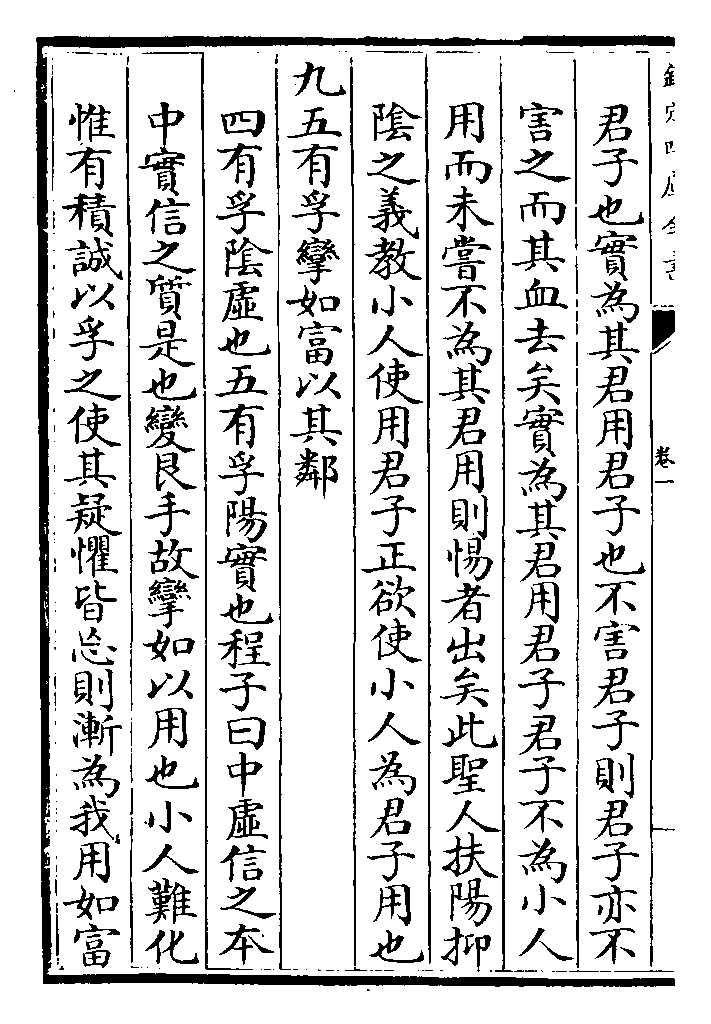 欽定四庫全書
卷一
君子也實為其君用君子也不害君子則君子亦不
害之而其血去矣實為其君用君子君子不為小人
用而未嘗不為其君用則惕者出矣此聖人扶陽抑
陰之義教小人使用君子正欲使小人為君子用也
九五有孚攣如富以其鄰
四有孚陰虛也五有孚陽實也程子曰中虛信之本
中實信之質是也變艮手故攣如以用也小人難化
惟有積誠以孚之使其疑懼皆忘則漸為我用如富